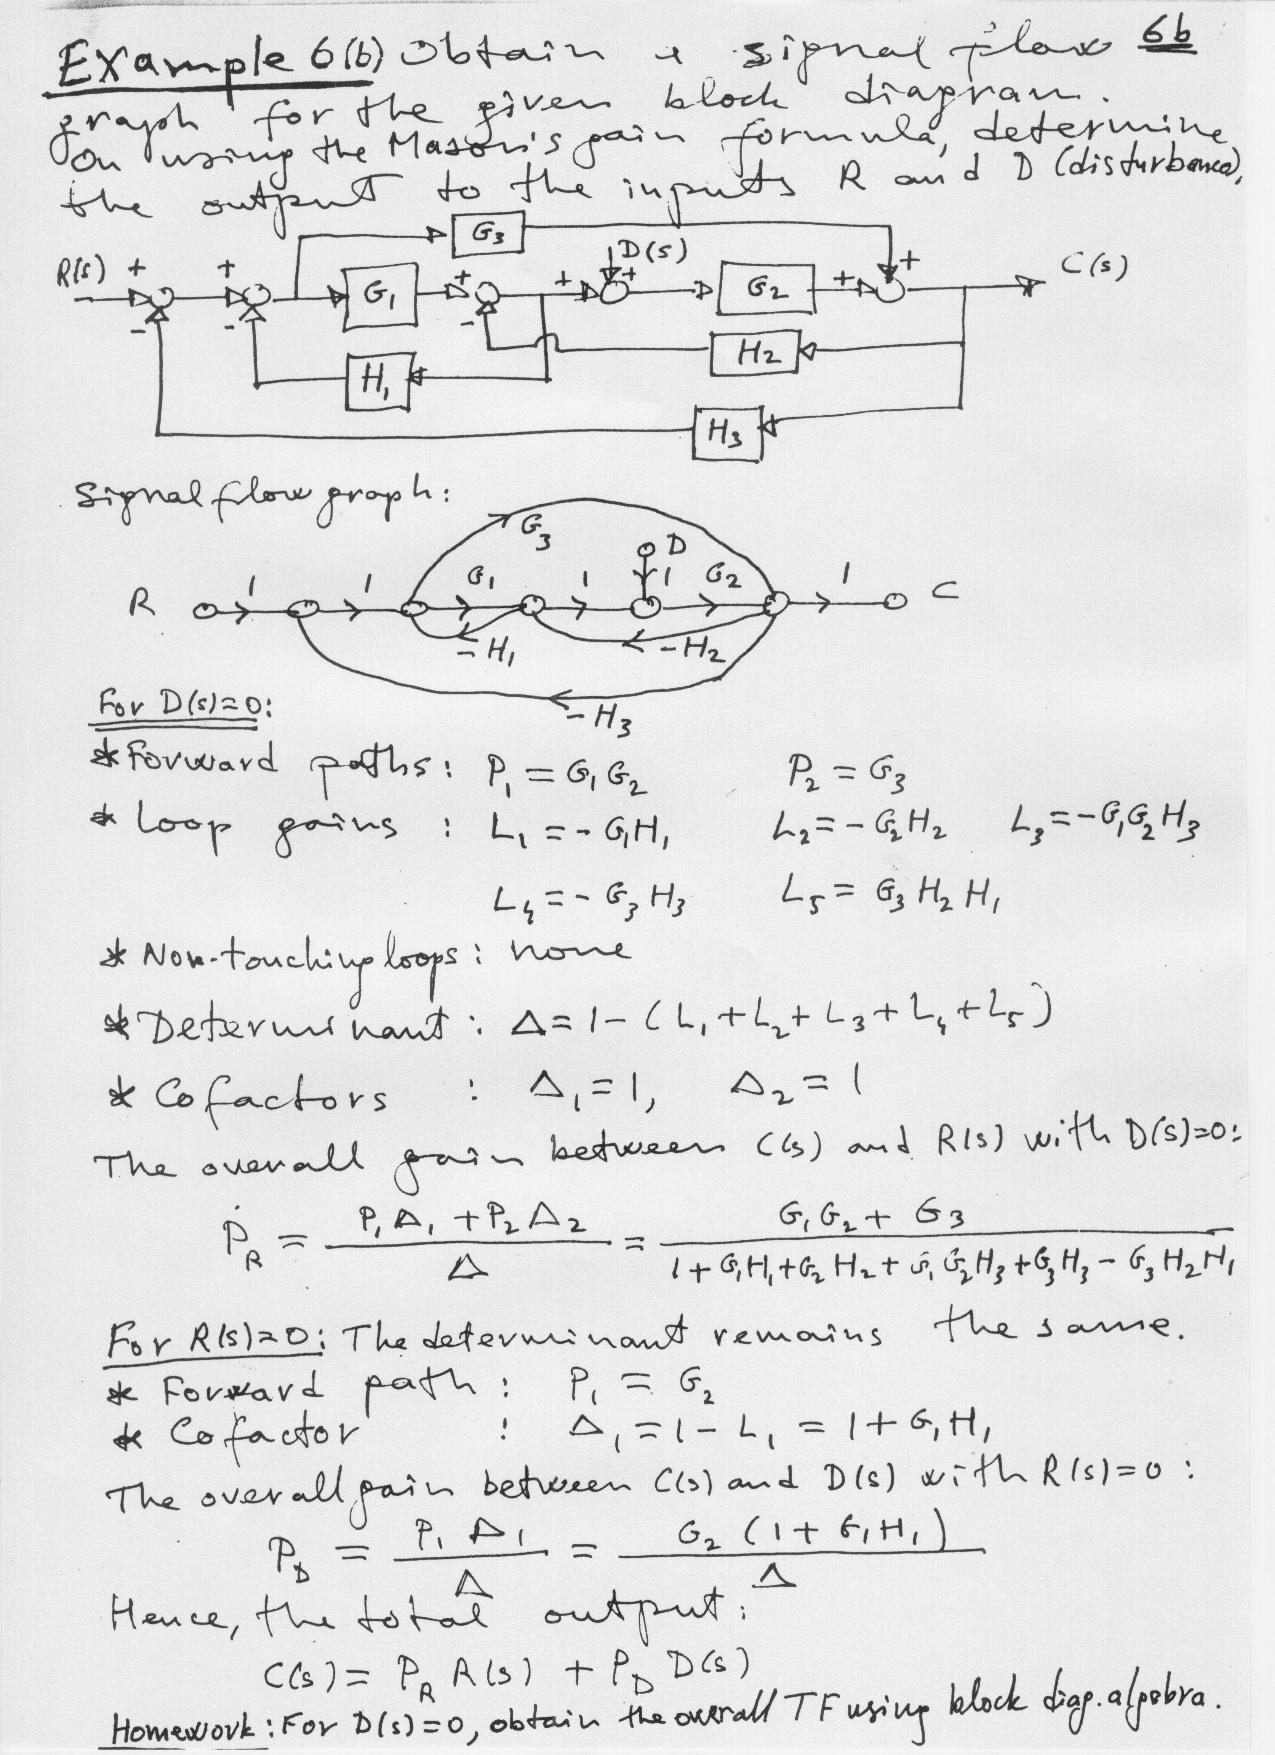 Example 6(b) Obtain a signal flow 6b
graph for the given block diagram.
On using the Mason's gain formula, determine
the output to the inputs R and D (disturbance),
G3
R(s) + + + + D(s) + + + C(s)
G1 G2
- - -
H2
H1
H3
Signal flow graph:
G3
D
R 1 1 G1 1 1 G2 1 C
-H1 -H2
-H3
For D(s)=0:
* Forward paths: P1 = G1G2 P2 = G3
* Loop gains : L1 = -G1H1 L2 = -G2H2 L3 = -G1G2H3
L4 = -G3H3 L5 = G3H2H1
* Non-touching loops: none
* Determinant: Δ = 1-(L1+L2+L3+L4+L5)
* Cofactors : Δ1 = 1, Δ2 = 1
The overall gain between C(s) and R(s) with D(s)=0:
PR = (P1Δ1 + P2Δ2)/Δ = (G1G2 + G3)/(1+G1H1+G2H2+G1G2H3+G3H3-G3H2H1)
For R(s)=0: The determinant remains the same.
* Forward path: P1 = G2
* Cofactor : Δ1 = 1-L1 = 1+G1H1
The overall gain between C(s) and D(s) with R(s)=0:
PD = P1Δ1/Δ = G2(1+G1H1)/Δ
Hence, the total output:
C(s) = PR R(s) + PD D(s)
Homework: For D(s)=0, obtain the overall TF using block diag. algebra.